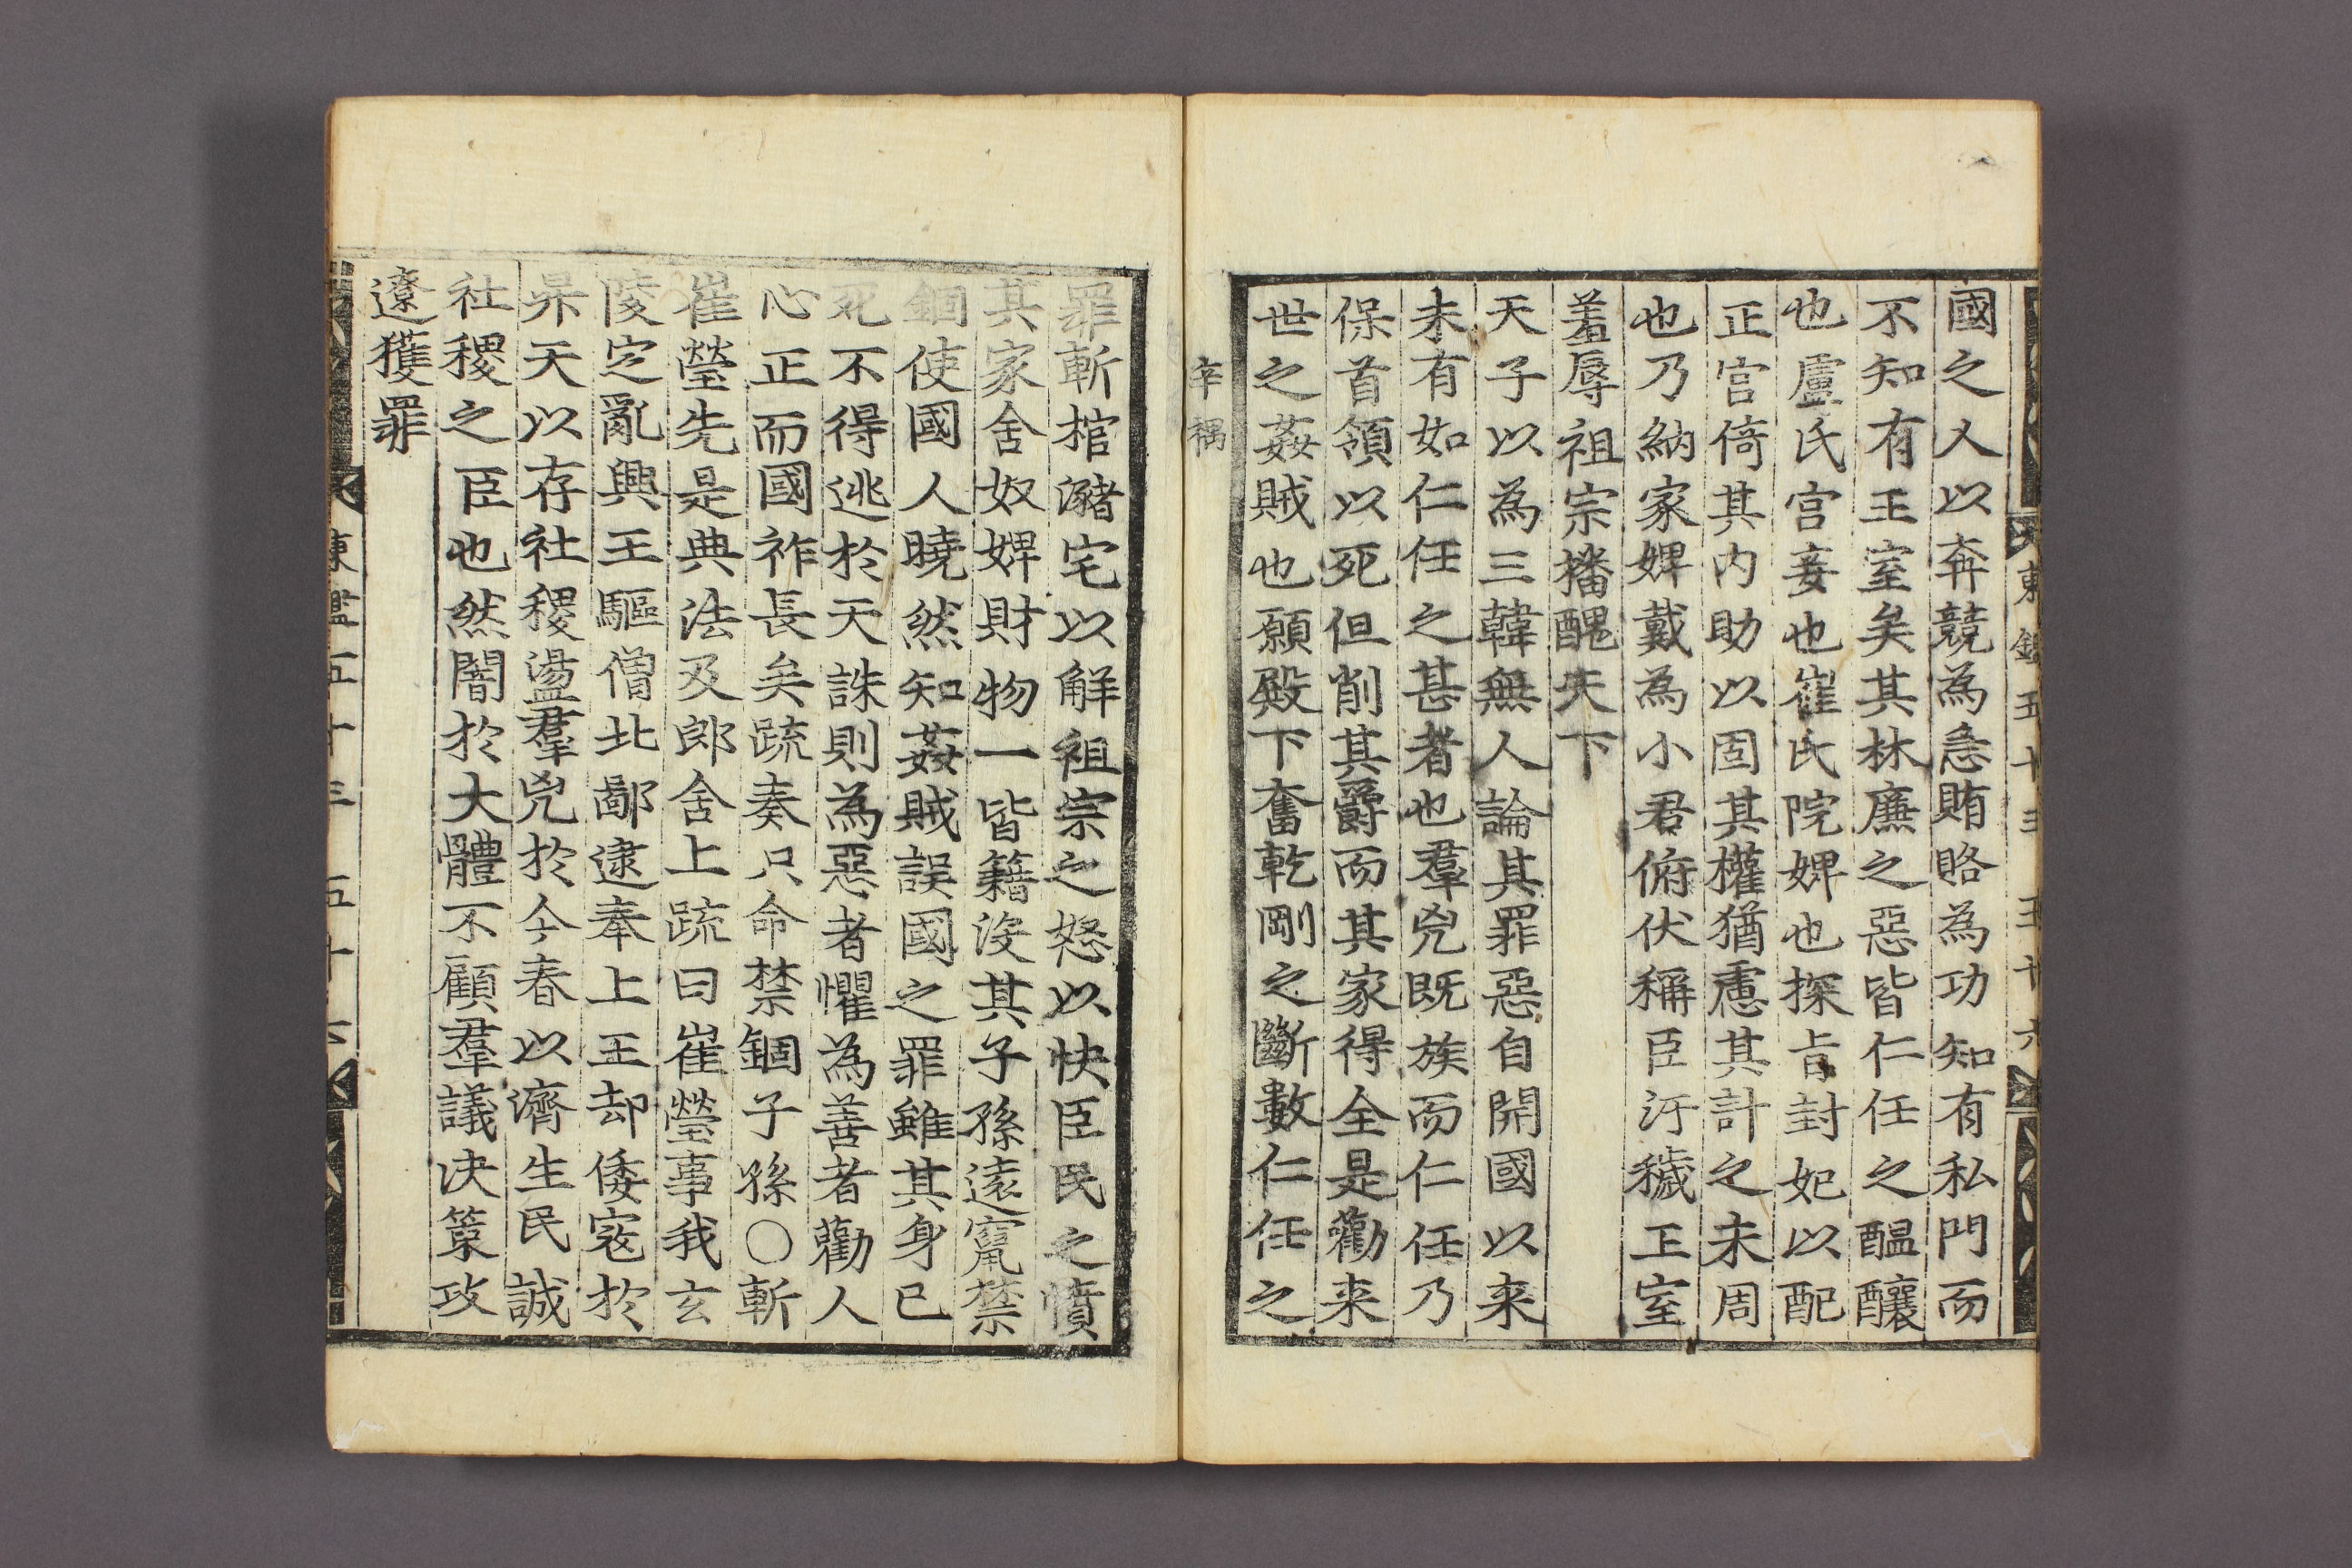 東鑑五十三 五十六
國之人以奔競為急賄賂為功知有私門而
不知有王室矣其林廉之惡皆仁任之醞釀
也盧氏宮妾也崔氏院婢也探旨封妃以配
正宮倚其內助以固其權猶慮其計之未周
也乃納家婢戴為小君俯伏稱臣汙穢王室
羞辱祖宗播醜天下
天子以為三韓無人論其罪惡自開國以来
未有如仁任之甚者也羣兇既族而仁任乃
保首領以死但削其爵而其家得全是勸来
世之姦賊也願殿下奮乾剛之斷數仁任之
辛禑
罪斬棺瀦宅以解祖宗之怒以快臣民之憤
其家舍奴婢財物一皆籍沒其子孫遠竄禁
錮使國人曉然知姦賊誤國之罪雖其身已
死不得逃於天誅則為惡者懼為善者勸人
心正而國祚長矣疏奏只命禁錮子孫〇斬
崔瑩先是典法及郎舍上疏曰崔瑩事我玄
陵定亂興王驅僧北鄙逮奉上王却倭寇於
昇天以存社稷盪羣兇於今春以濟生民誠
社稷之臣也然闇於大體不顧羣議决策攻
遼獲罪
東鑑五十三 五十六